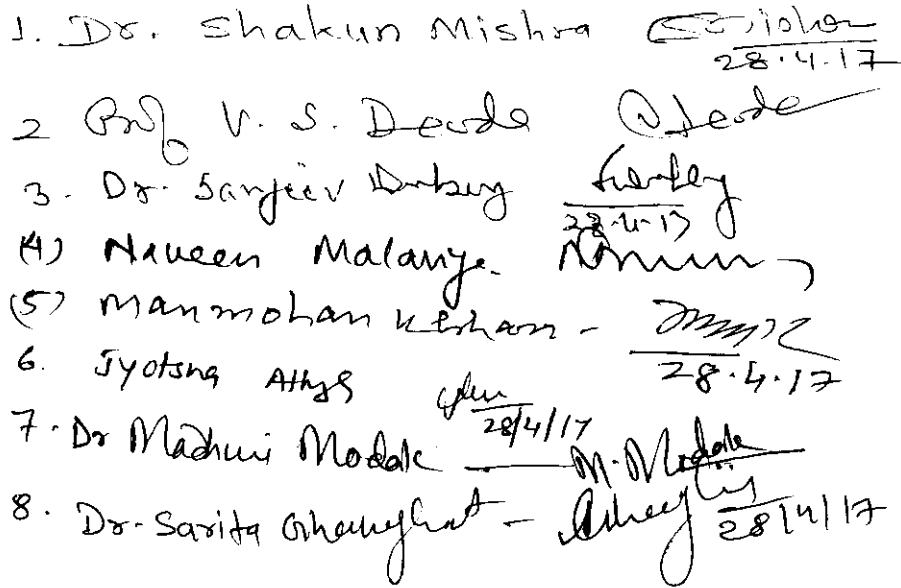 1. Dr. Shakun Mishra
28.4.17
2 Prof V. S. Deode
3. Dr. Sanjeev Dubey
28.4.17
(4) Naveen Malaviye
(5) Manmohan Keshari -
28.4.17
6. Jyotsna
28/4/17
7. Dr Madhuri Modak M. Modak
8. Dr. Sarita Ghanghat -
28/4/17